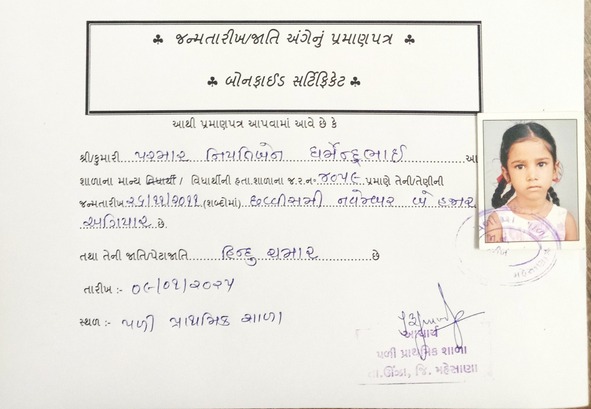 જન્મતારીખ/જાતિ અંગેનું પ્રમાણપત્ર
બોનફાઈડ સર્ટિફિકેટ
આથી પ્રમાણપત્ર આપવામાં આવે છે કે
શ્રી/કુમારી પરમાર નિયતિબેન ધર્મેન્દ્રભાઈ આ
શાળાના માન્ય વિદ્યાર્થી / વિદ્યાર્થીની હતા.શાળાના જ.ર.નં.૪૦૫૯ પ્રમાણે તેની/તેણીની
જન્મતારીખ ૨૬/૧૧/૨૦૧૧ (શબ્દોમાં) છવ્વીસમી નવેમ્બર બે હજાર
અગિયાર છે
તથા તેની જાતિ/પેટાજાતિ હિન્દુ ચમાર છે
તારીખ :- ૦૯/૦૧/૨૦૨૫
સ્થળ :- પળી પ્રાથમિક શાળા
આચાર્ય
પળી પ્રાથમિક શાળા
તા.ઊંઝા, જિ. મહેસાણા